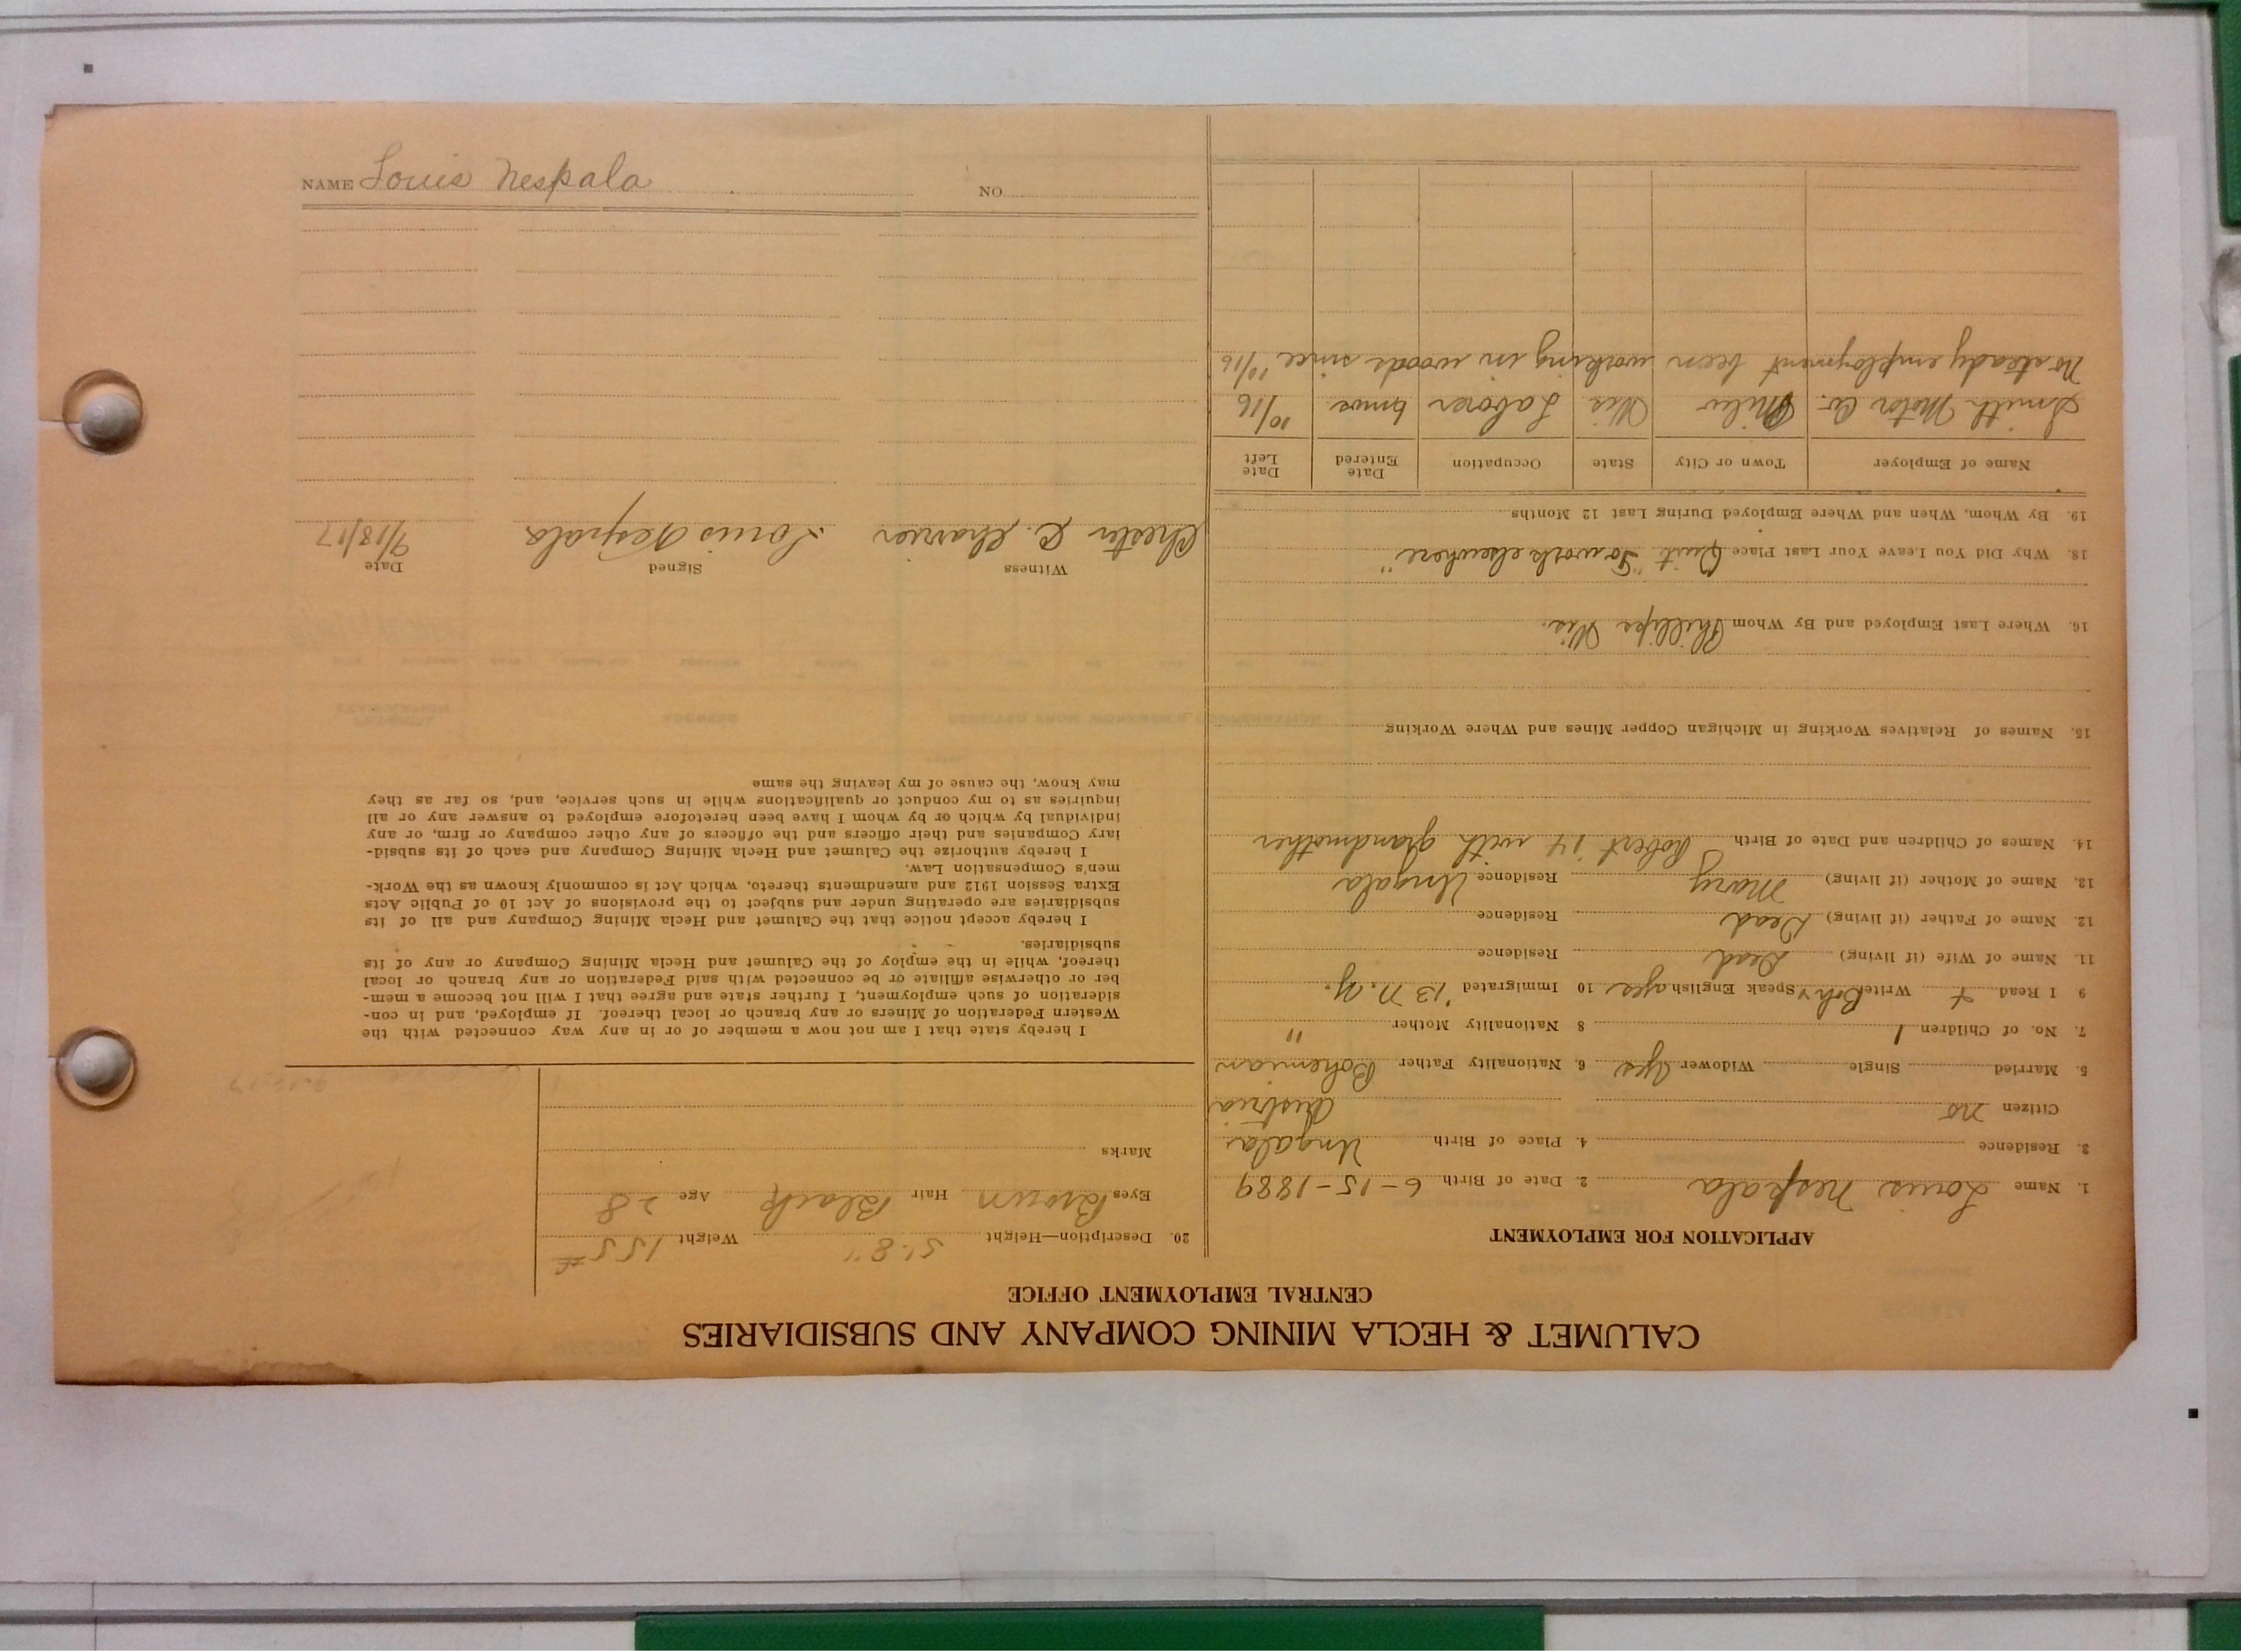 CALUMET & HECLA MINING COMPANY AND SUBSIDIARIES
CENTRAL EMPLOYMENT OFFICE
APPLICATION FOR EMPLOYMENT
1. Name Louis Nespala 2. Date of Birth 6-15-1889
3. Residence 4. Place of Birth Ungala
Citizen no Austria
5. Married Single Widower Yes 6. Nationality Father Bohemian
7. No. of Children 1 8 Nationality Mother "
9 I Read Write Boh Speak English yes 10 Immigrated '13 N.Y.
11. Name of Wife (if living) Dead Residence
12. Name of Father (if living) Dead Residence
13. Name of Mother (if living) Mary Residence Ungala
14. Names of Children and Date of Birth Robert '14 with grandmother
15. Names of Relatives Working in Michigan Copper Mines and Where Working
16. Where Last Employed and By Whom Phillips Wis.
18. Why Did You Leave Your Last Place Quit "To work elsewhere"
19. By Whom, When and Where Employed During Last 12 Months
Name of Employer Town or City State Occupation Date Entered Date Left
Smith Motor Co. Milw Wis Laborer 6 mos 10/16
No steady employment been working in woods since 10/16
20. Description—Height 5'.8" Weight 155#
Eyes Brown Hair Black Age 28
Marks
I hereby state that I am not now a member of or in any way connected with the
Western Federation of Miners or any branch or local thereof. If employed, and in con-
sideration of such employment, I further state and agree that I will not become a mem-
ber or otherwise affiliate or be connected with said Federation or any branch or local
thereof, while in the employ of the Calumet and Hecla Mining Company or any of its
subsidiaries.
I hereby accept notice that the Calumet and Hecla Mining Company and all of its
subsidiaries are operating under and subject to the provisions of Act 10 of Public Acts
Extra Session 1912 and amendments thereto, which Act is commonly known as the Work-
men's Compensation Law.
I hereby authorize the Calumet and Hecla Mining Company and each of its subsid-
iary Companies and their officers and the officers of any other company or firm, or any
individual by which or by whom I have been heretofore employed to answer any or all
inquiries as to my conduct or qualifications while in such service, and, so far as they
may know, the cause of my leaving the same
Witness Signed Date
Chester C. Louis Nespala 9/18/17
NAME Louis Nespala NO.